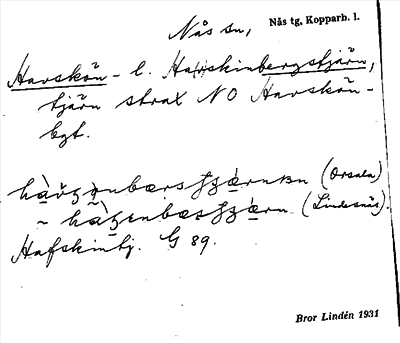 Nås sn,
Nås tg, Kopparb. l.
Havskön- l. Ha(v)skinbergstjärn,
tjärn strax NO Havskön-
bgt.
(Orsala)
~ (Lindesnäs).
Hafskintj. G 89.
Bror Lindén 1931